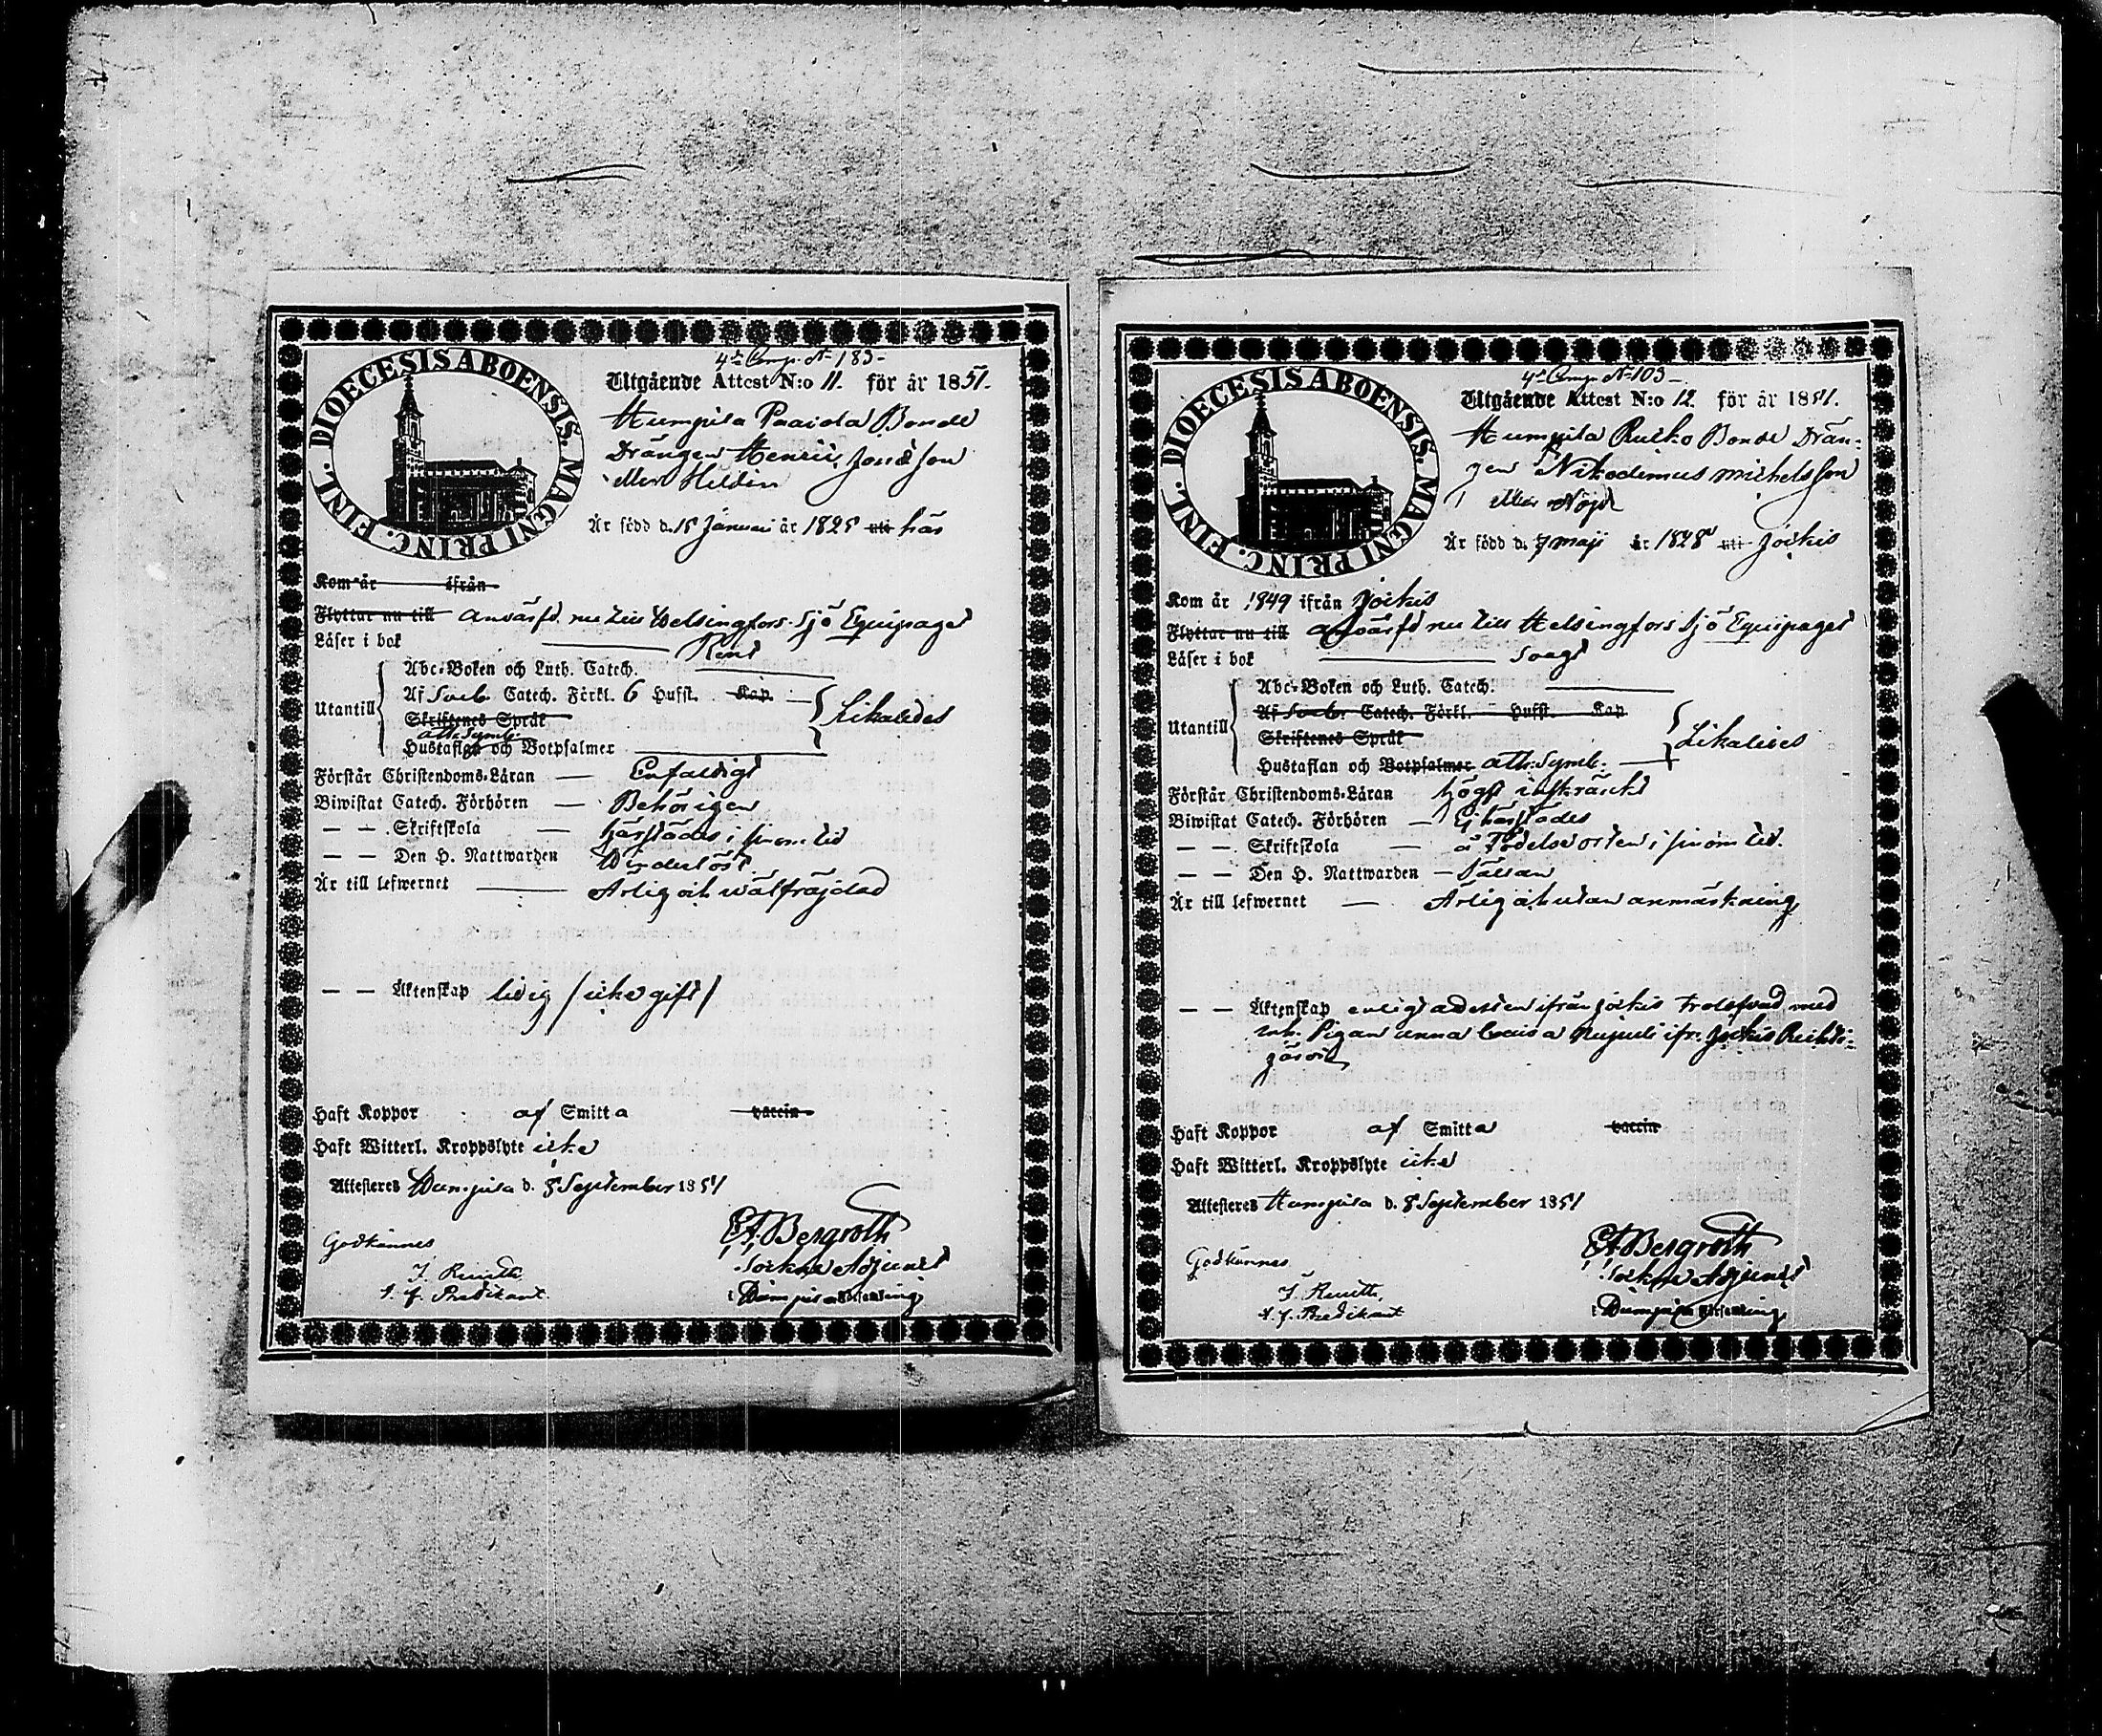 DIOECESIS ABOENSIS. MAGNI PRINC. FINL.
4de Comp. No 183-
Utgående Attest N:o 11. för år 1851.
Humpila Paaiola Bonde
Drängen Henric Jonasson
eller Heldin
Är född d. 15 Januari år 1825 uti här
Kom år ifrån
Flyttar nu till Anvärfd nu till Helsingfors Sjö Equipaget
Läser i bok Rent
Utantill
Abc-Boken och Luth. Catech.
Af Sveb. Catech. Förkl. 6 Hufst. Kap.
Skriftenes Språk
Ath. Symb.
Hustaflan och Botpsalmer
Likaledes
Förstår Christendoms-Läran Enfaldigt
Biwistat Catech. Förhören Behörigen
— — Skriftskola härstädes i sinom tid
— — Den H. Nattwarden Oförderlöst
Är till lefwernet Ärlig och wälfräjdad
— — Äktenskap ledig /icke gift/
Haft Koppor af Smitta vaccin
Haft Witterl. Kroppslyte icke
Attesteres Humpila d. 8 September 1851
Godkännes
E. A. Bergroth
Sockne Adjunct
i Humpila församling
t. f. Predikant
DIOECESIS ABOENSIS. MAGNI PRINC. FINL.
4de Comp. No 103-
Utgående Attest N:o 12. för år 1851.
Humpila Ruicko Bonde Drän-
gen Nikodemus Michelsson
eller Nöjd
Är född d. 7 maji år 1828 uti Jockis
Kom år 1849 ifrån Jockis
Flyttar nu till Anvärfd nu till Helsingfors Sjö Equipaget
Läser i bok svagt
Utantill
Abc-Boken och Luth. Catech.
Af Sveb. Catech. Förkl. Hufst. Kap
Skriftenes Språk
Hustaflan och Botpsalmer Ath. Symb.
Likaledes
Förstår Christendoms-Läran högst inskränkt
Biwistat Catech. Förhören Ej härstädes
— — Skriftskola å Födelseorten i sinom tid.
— — Den H. Nattwarden Sällan
Är till lefwernet Ärlig och utan anmärkning
— — Äktenskap enligt attesten ifrån Jockis trolofvad med
Pigan Anna Lovisa ifr. Jockis
järvi
Haft Koppor af Smitta vaccin
Haft Witterl. Kroppslyte icke
Attesteres Humpila d. 8 September 1851
Godkännes
E. A. Bergroth
Sockne Adjunct
i Humpila församling
t. f. Predikant